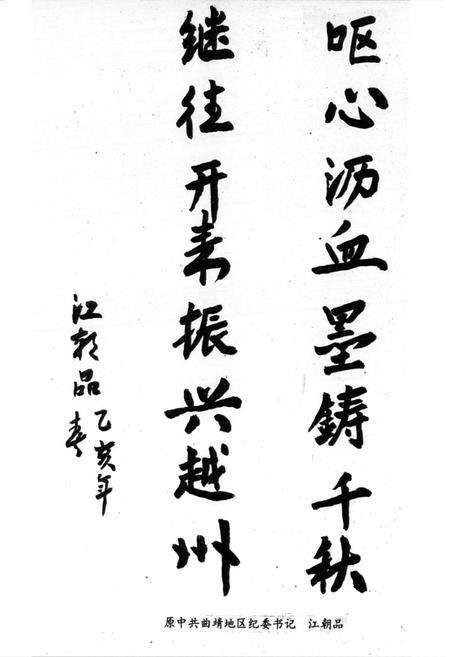 呕心沥血墨铸千秋
继往开来振兴越州
乙亥年
江朝品
春
原中共曲靖地区纪委书记　江朝品